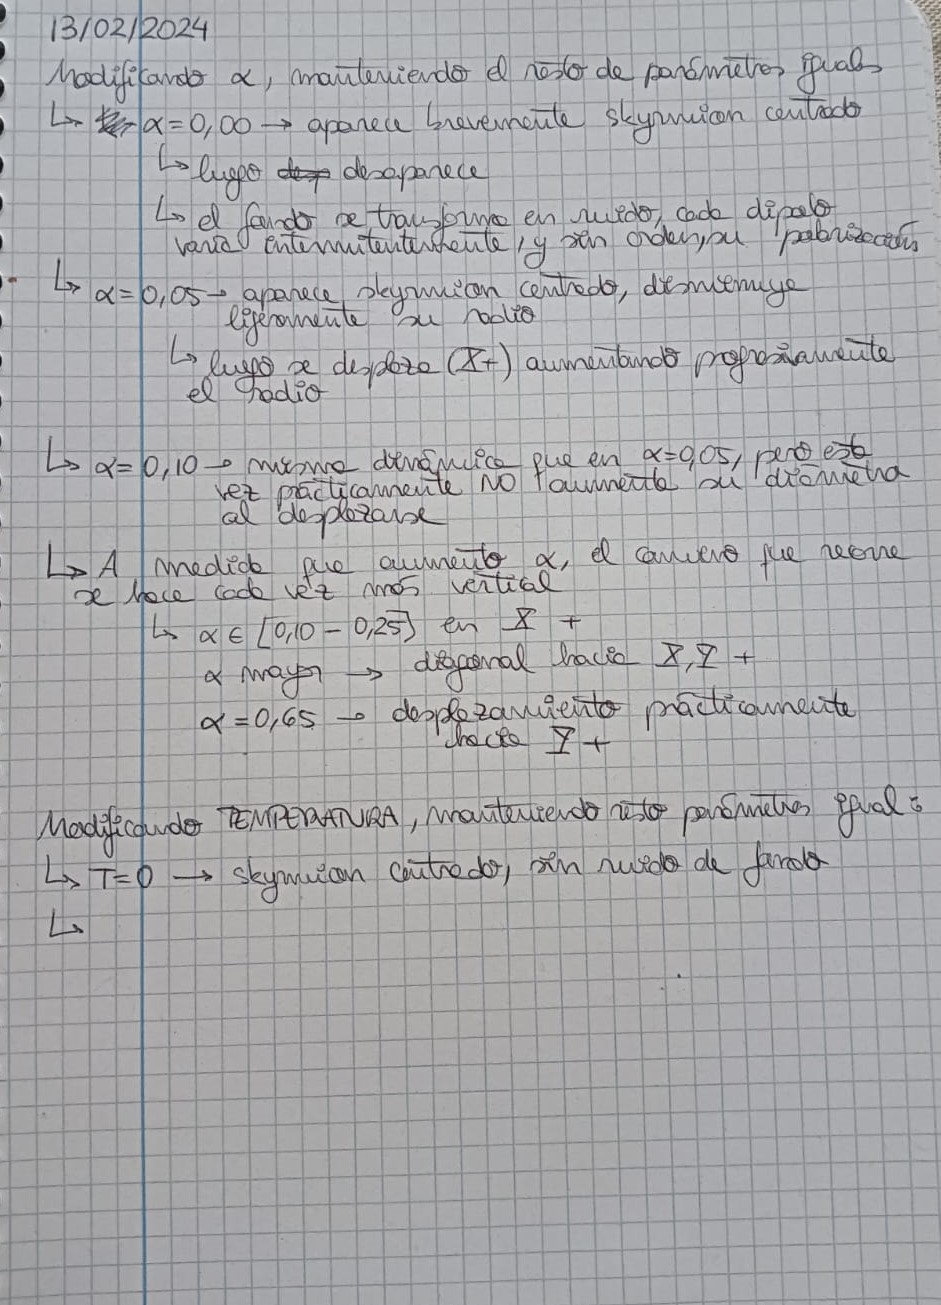 13/02/2024
Modificando α, manteniendo el resto de parámetros iguales
↳ α=0,00 → aparece brevemente skyrmion centrado
↳ luego desaparece
↳ el fondo se transforma en ruido, cada dipolo
varía intermitentemente, y sin orden, su polarización
↳ α=0,05 → aparece skyrmion centrado, disminuye
ligeramente su radio
↳ luego se desplaza (X+) aumentando progresivamente
el radio
↳ α=0,10 → misma dinámica que en α=0,05, pero esta
vez prácticamente NO aumenta su diámetro
al desplazarse
↳ A medida que aumento α, el camino que recorre
se hace cada vez más vertical
↳ α ∈ [0,10 - 0,25] en X +
α mayor → diagonal hacia X, Y +
α=0,65 → desplazamiento prácticamente
hacia Y +
Modificando TEMPERATURA, manteniendo resto parámetros igual:
↳ T=0 → skyrmion centrado, sin ruido de fondo
↳